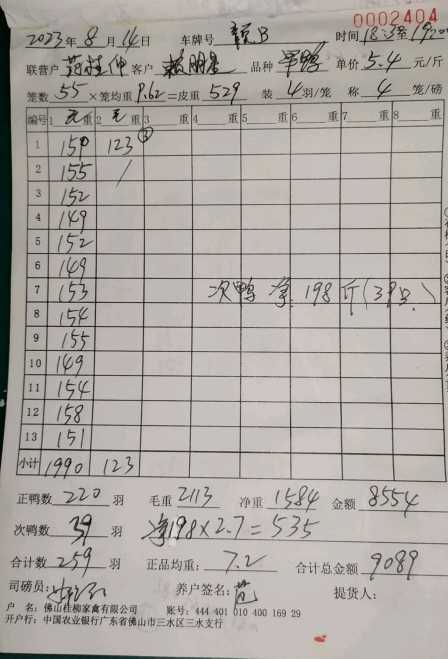 0002404
2023年8月14日 车牌号 B 时间18:
联营户 客户 品种 单鸭 单价5.4元/斤
笼数55×笼均重9.62=皮重529 装4羽/笼 称4笼/磅
编号 1毛重 2毛重 3 重 4 重 5 重 6 重 7 重 8 重
1 159 123 ③
2 155 /
3 152
4 149
5 152
6 149
7 153 次鸭 净 198斤(39只)
8 154
9 155
10 149
11 154
12 158
13 151
小计 1990 123
正鸭数220羽 毛重2113 净重1584 金额8554
次鸭数39羽 净198×2.7=535
合计数259羽 正品均重:7.2 合计总金额9089
司磅员: 养户签名: 提货人:
户 名:佛山桂柳家禽有限公司 账号:444 401 010 400 169 29
开户行:中国农业银行广东省佛山市三水区三水支行